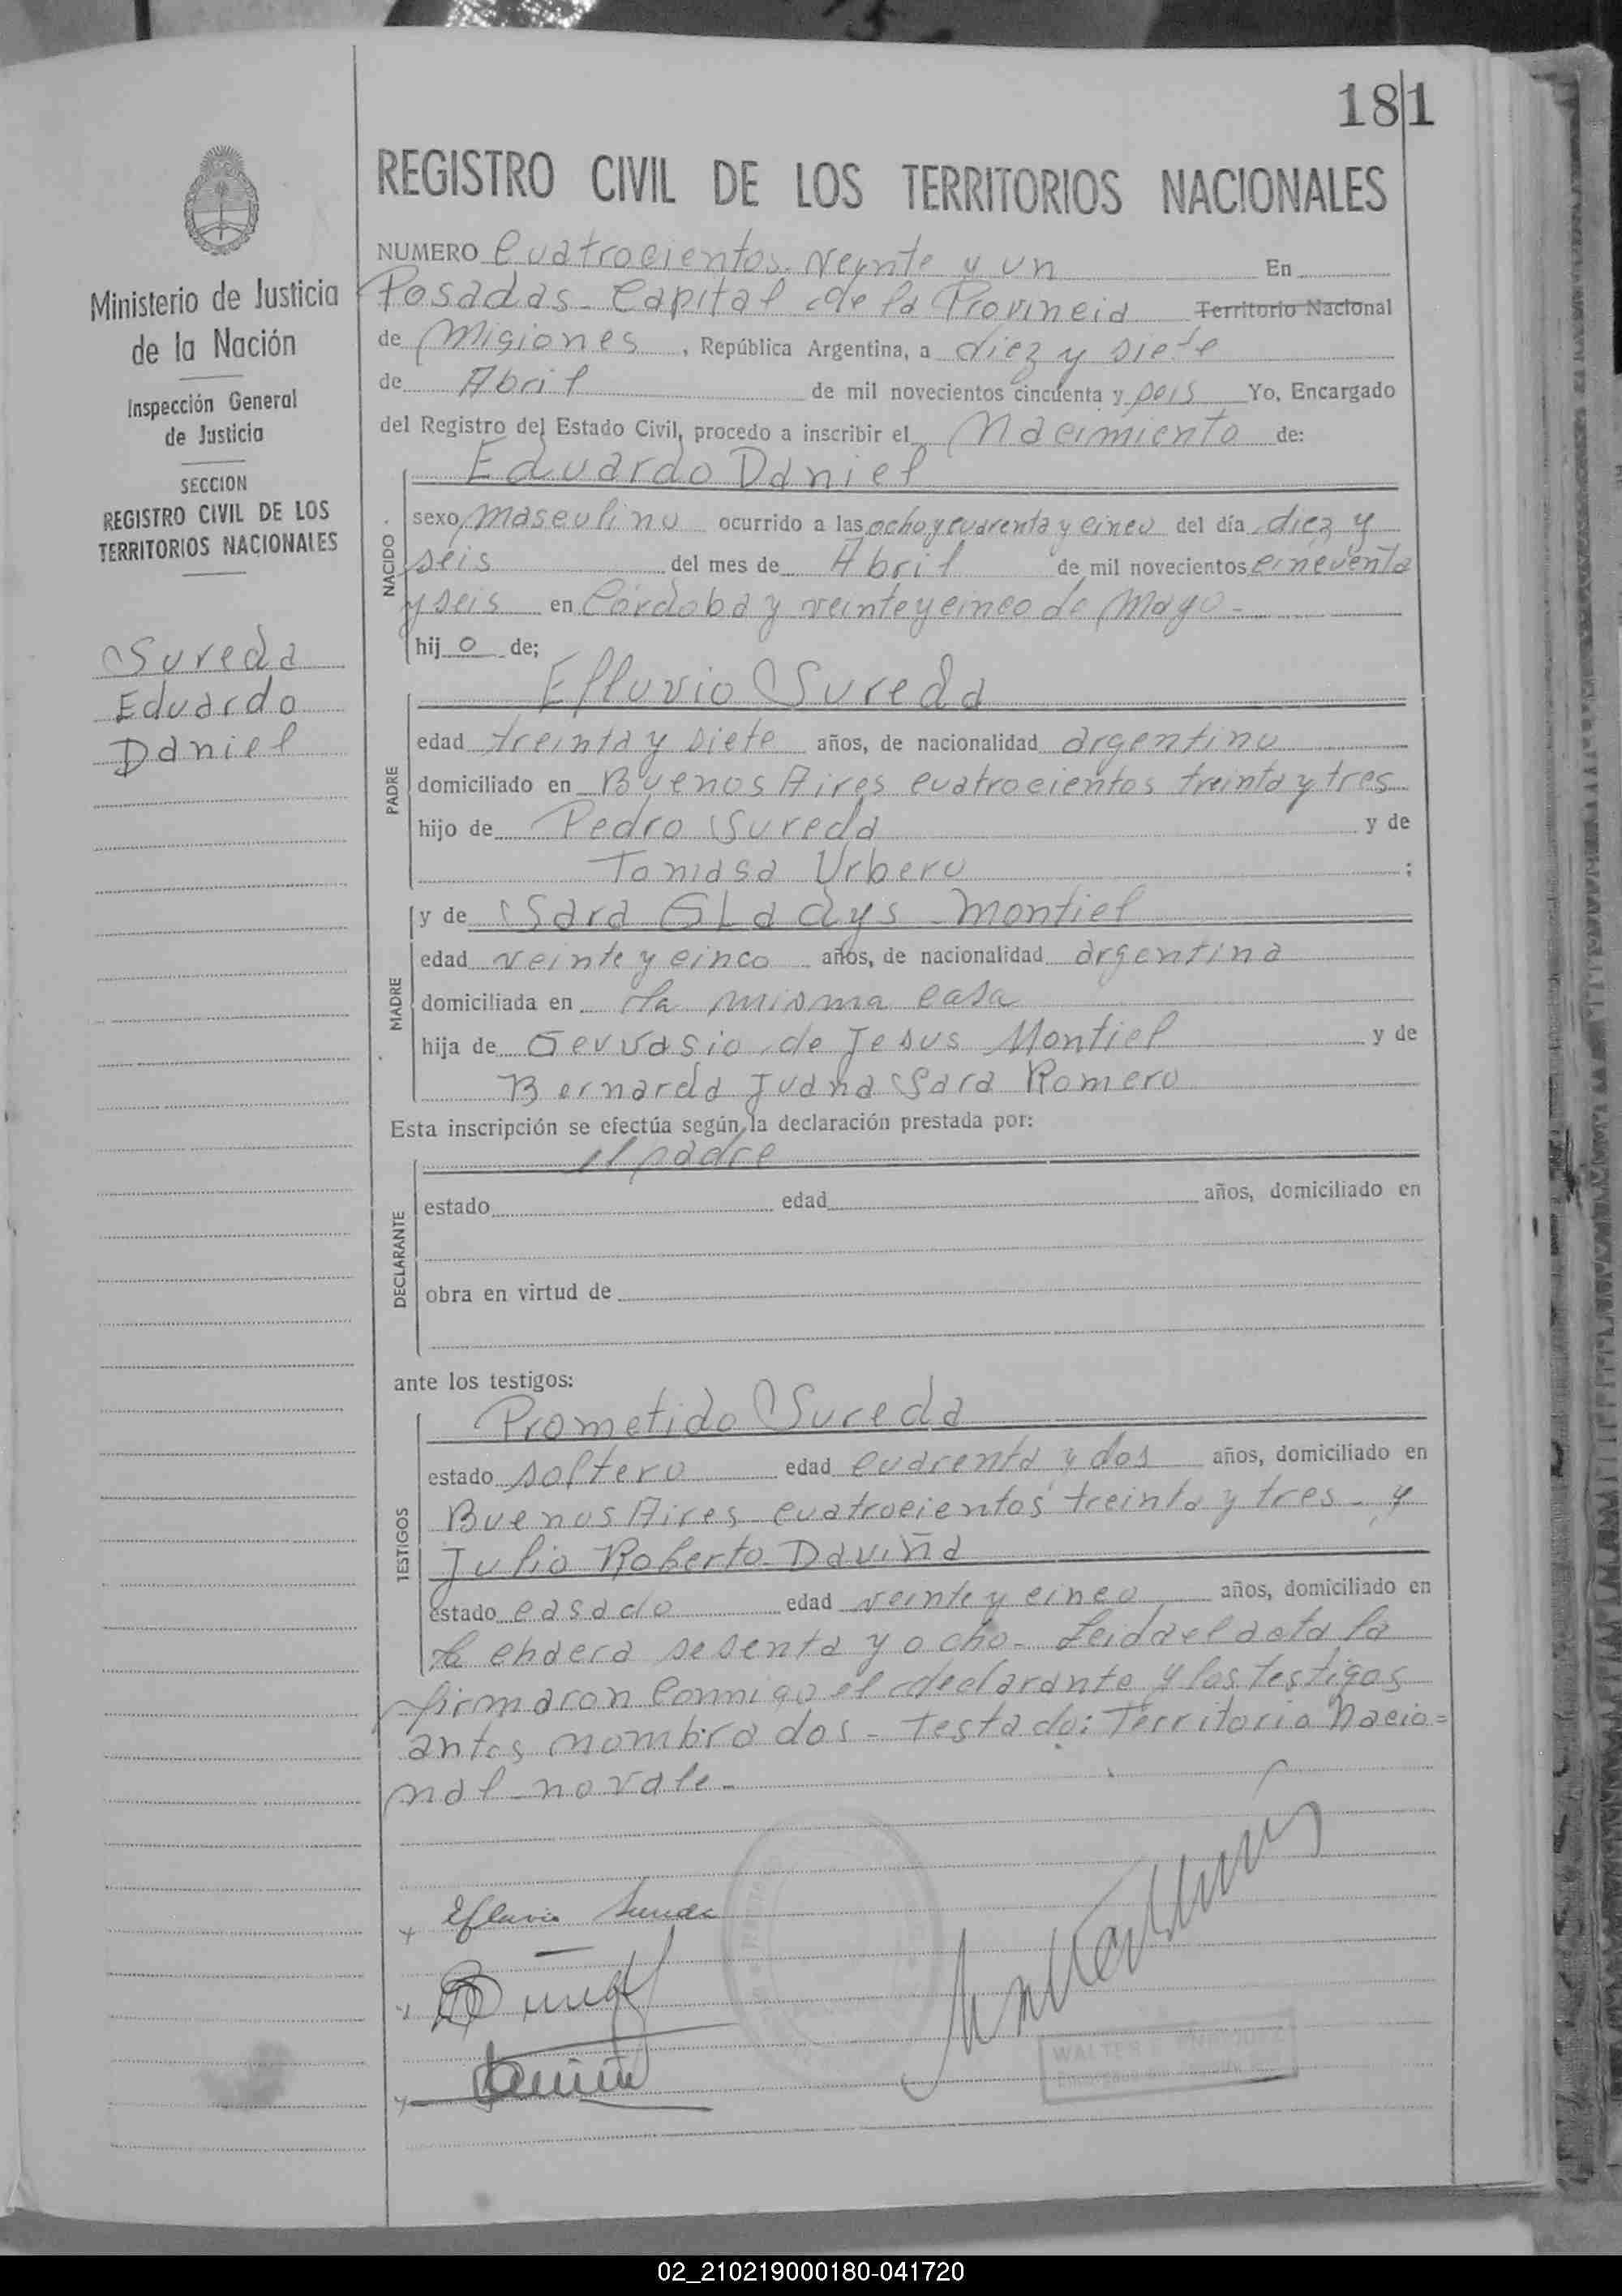 181
REGISTRO CIVIL DE LOS TERRITORIOS NACIONALES
Ministerio de Justicia
de la Nación
Inspección General
de Justicia
SECCION
REGISTRO CIVIL DE LOS
TERRITORIOS NACIONALES
Sureda
Eduardo
Daniel
NUMERO Cuatrocientos veynte y un En
Posadas - Capital de la Provincia Territorio Nacional
de Misiones, República Argentina, a diez y siete
de Abril de mil novecientos cincuenta y seis Yo, Encargado
del Registro del Estado Civil, procedo a inscribir el Nacimiento de:
NACIDO
Eduardo Daniel
sexo masculino ocurrido a las ocho y cuarenta y cinco del día diez y
seis del mes de Abril de mil novecientos cincuenta
y seis en Córdoba y veinte y cinco de Mayo -
hij o de;
PADRE
Efluvio Sureda
edad treinta y siete años, de nacionalidad argentino
domiciliado en Buenos Aires cuatrocientos treinta y tres
hijo de Pedro Sureda y de
Tomasa Urbero ;
MADRE
y de Sara Gladys Montiel
edad veinte y cinco años, de nacionalidad argentina
domiciliada en la misma casa
hija de Gervasio de Jesus Montiel y de
Bernarda Juana Sara Romero
Esta inscripción se efectúa según la declaración prestada por:
DECLARANTE
el padre
estado edad años, domiciliado en
obra en virtud de
ante los testigos:
TESTIGOS
Prometido Sureda
estado soltero edad cuarenta y dos años, domiciliado en
Buenos Aires cuatrocientos treinta y tres - y
Julio Roberto Daviña
estado casado edad veinte y cinco años, domiciliado en
la chacra sesenta y ocho - Leida el acta la
firmaron conmigo el declarante y los testigos
antes nombrados - Testado: Territorio Nacio=
nal - no vale -
Efluvio Sureda
WALTER
02_210219000180-041720